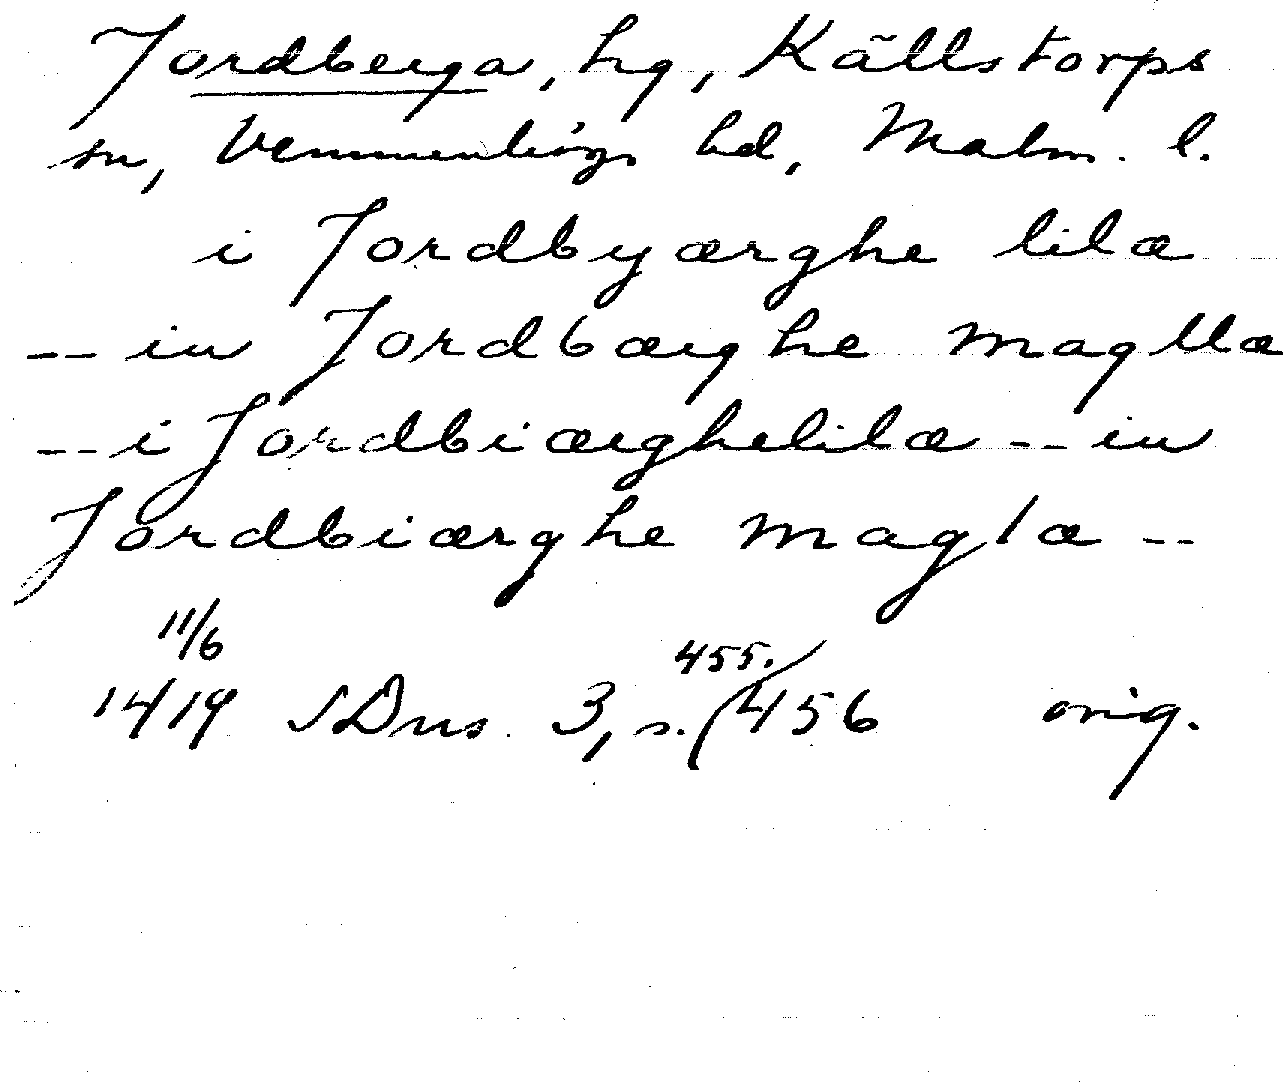 Jordberga, hg, Källstorps
sn, Vemmenhögs hd, Malm. l.
i Jordbyærghe lilæ
-- in Jordbærghe magllæ
-- i Jordbiærghelilæ -- in
Jordbiærghe maglæ --
11/6
1419 SDns 3, s. 455. / 456 orig.